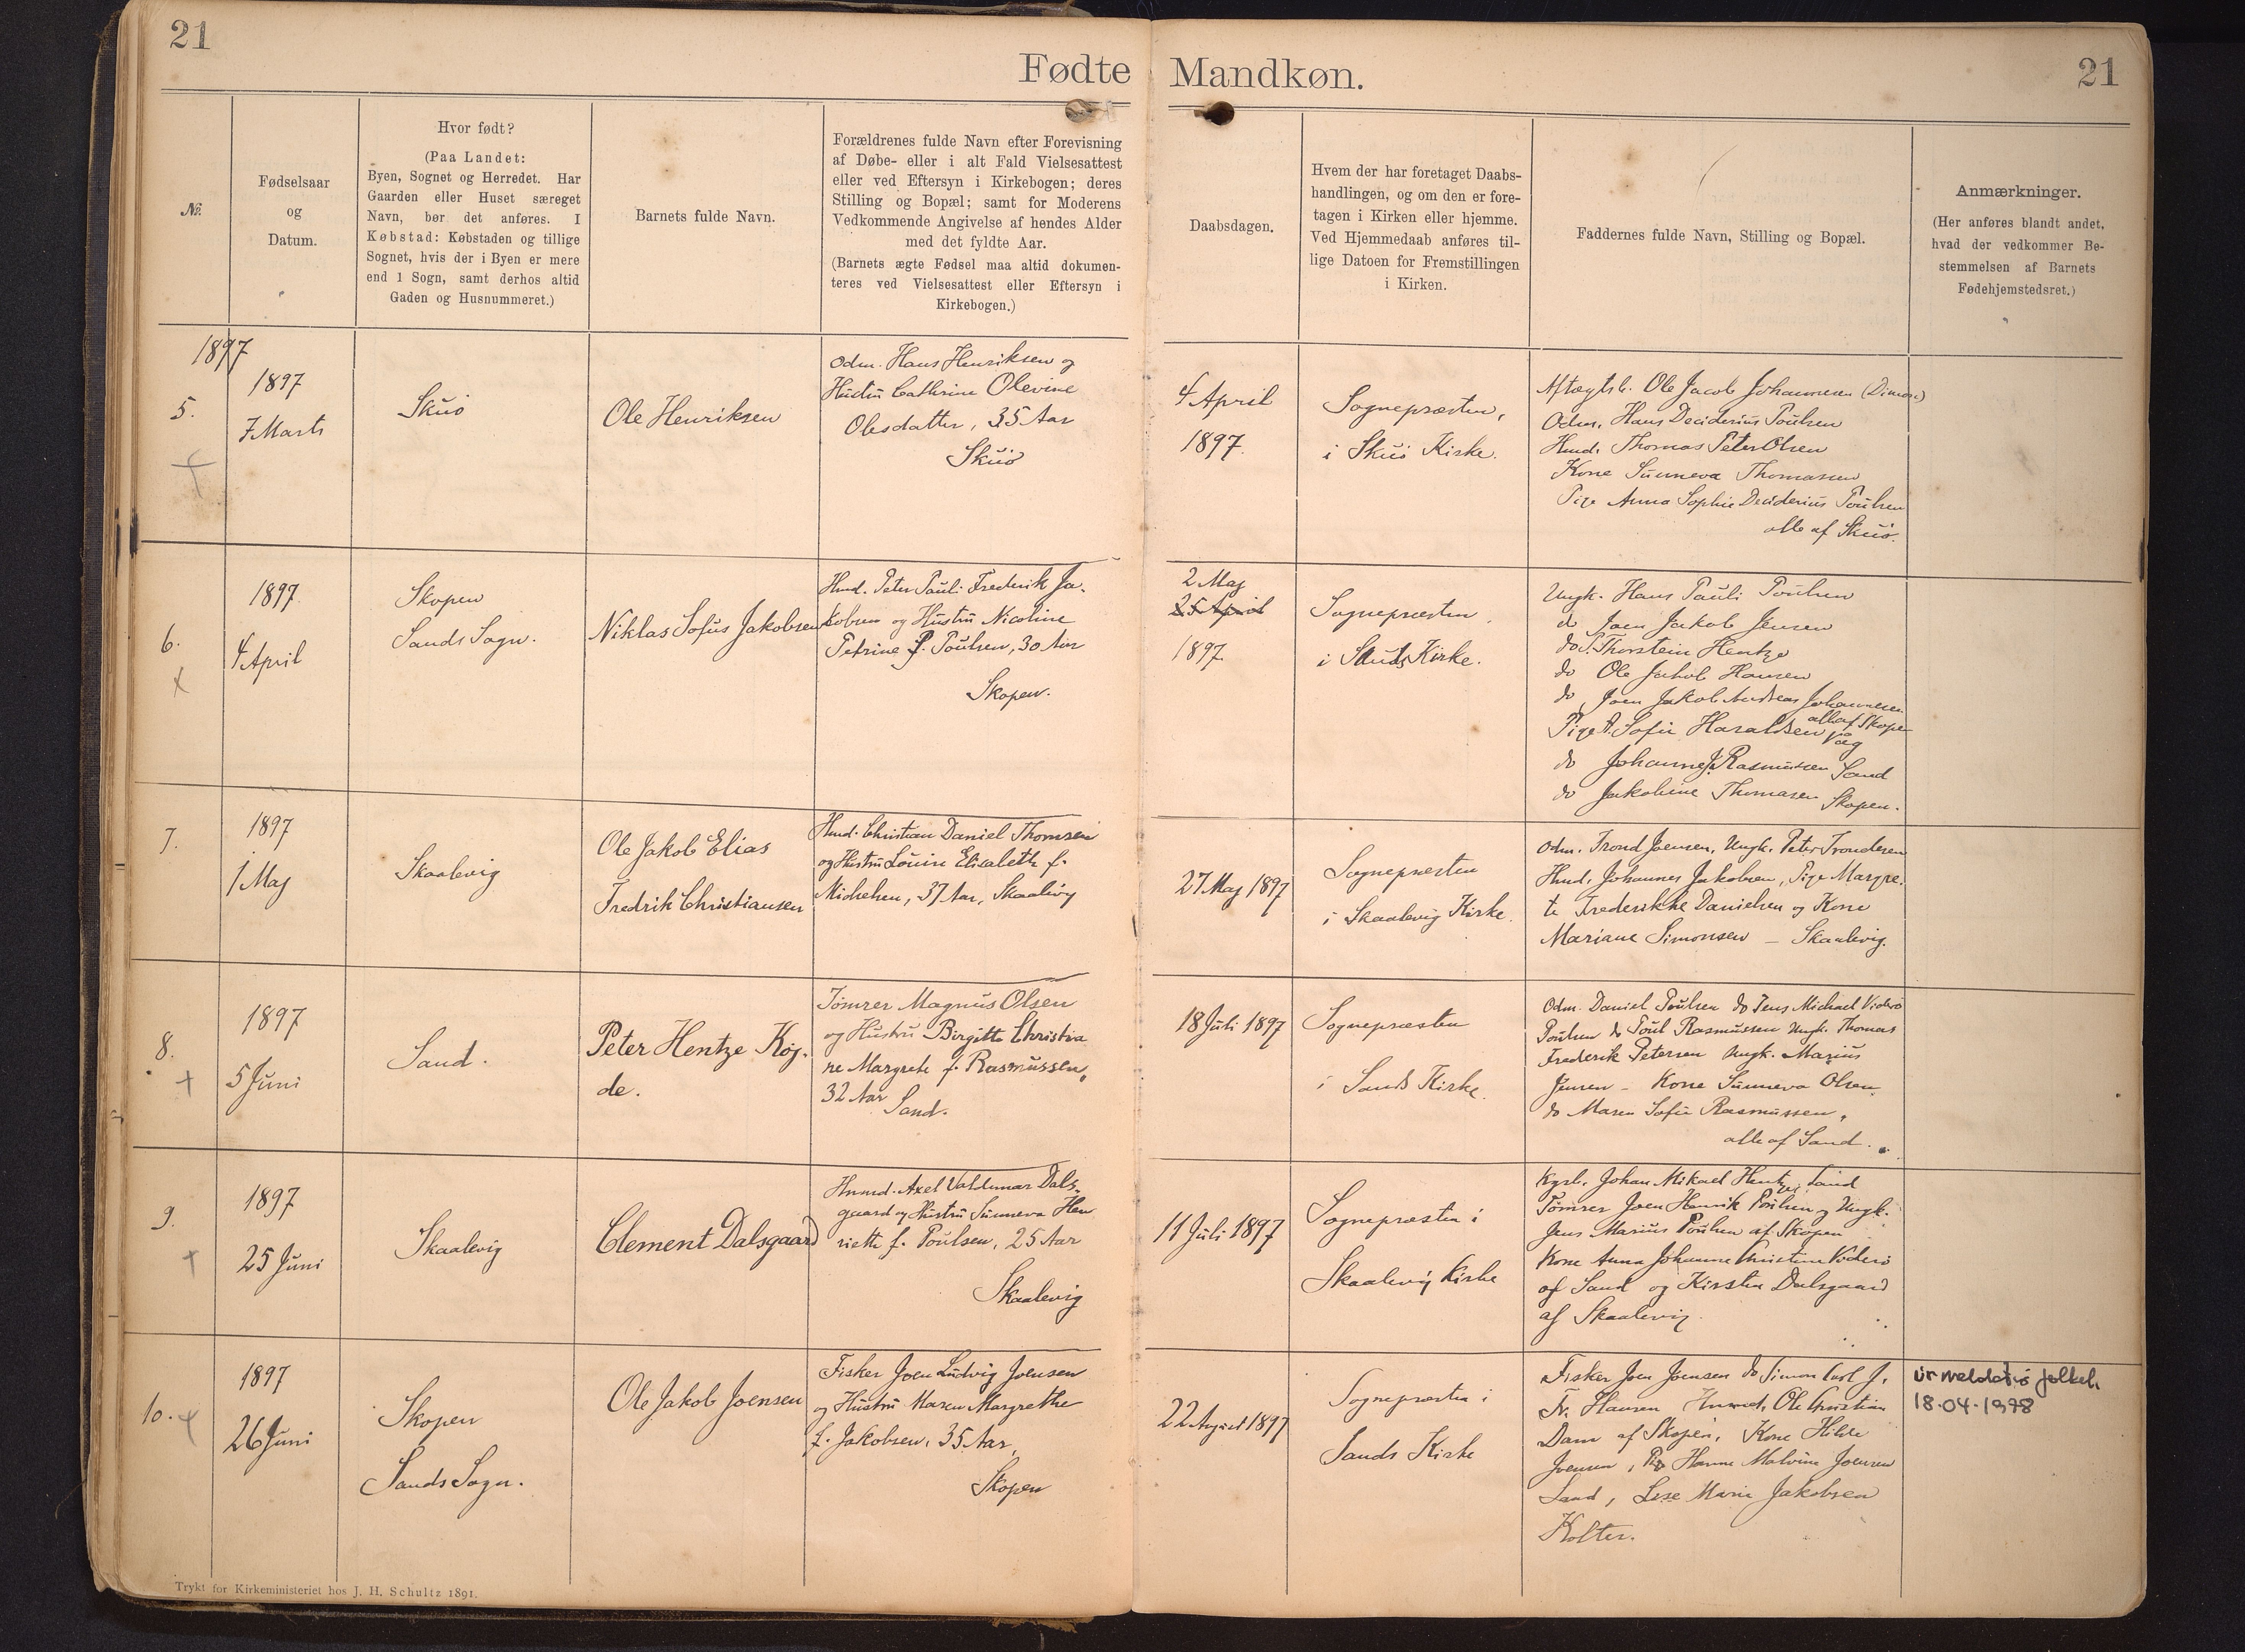 21
Fødte Mandkøn.
21
Nr.
Fødselsaar
og
Datum.
Hvor født?
(Paa Landet:
Byen, Sognet og Herredet. Har
Gaarden eller Huset særeget
Navn, bør det anføres. I
Købstad: Købstaden og tillige
Sognet, hvis der i Byen er mere
end 1 Sogn, samt derhos altid
Gaden og Husnummeret.)
Barnets fulde Navn.
Forældrenes fulde Navn efter Forevisning
af Døbe- eller i alt Fald Vielsesattest
eller ved Eftersyn i Kirkebogen; deres
Stilling og Bopæl; samt for Moderens
Vedkommende Angivelse af hendes Alder
med det fyldte Aar.
(Barnets ægte Fødsel maa altid dokumen-
teres ved Vielsesattest eller Eftersyn i
Kirkebogen.)
Daabsdagen.
Hvem der har foretaget Daabs-
handlingen, og om den er fore-
tagen i Kirken eller hjemme.
Ved Hjemmedaab anføres til-
lige Datoen for Fremstillingen
i Kirken.
Faddernes fulde Navn, Stilling og Bopæl.
Anmærkninger.
(Her anføres blandt andet,
hvad der vedkommer Be-
stemmelsen af Barnets
Fødehjemstedsret.)
1897
5.
1897
7 Marts
Skuø
Ole Henriksen
Odm. Hans Henriksen og
Hustru Cathrine Olevine
Olesdatter, 35 Aar
Skuø
4 April
1897.
Sognepræsten,
i Skuø Kirke.
Aftægtsb. Ole Jacob Johannesen (Dimon)
Odm. Hans Deciderius Poulsen
Hmd. Thomas Peter Olsen
Kone Sunneva Thomasen
Pige Anna Sophie Deciderius Poulsen
alle af Skuø.
6.
1897.
4 April
Skopen
Sands Sogn.
Niklas Sofus Jakobsen
Hmd. Peter Pauli Frederik Ja-
kobsen og Hustru Nicoline
Petrine f. Poulsen, 30 Aar
Skopen.
2 Maj
25 April
1897.
Sognepræsten
i Sands Kirke.
Ungk. Hans Pauli Poulsen
do Joen Jakob Jensen
do P. Thorstein Hentze
do Ole Jakob Hansen
do Joen Jakob Andreas Johannesen
alle af Skopen
Pige A. Sofie Haraldsen Våg
do Johanne J. Rasmussen Sand
do Jakobine Thomasen Skopen.
7.
1897
1 Maj
Skaalevig
Ole Jakob Elias
Fredrik Christiansen
Hmd. Christian Daniel Thomsen
og Hustru Louise Elisabeth f.
Michelsen, 37 Aar, Skaalevig
27 Maj 1897
Sognepræsten
i Skaalevig Kirke.
Odm. Trond Joensen, Ungk. Peter Trondesen
Hmd. Johannes Jakobsen, Pige Margre-
te Frederikke Danielsen og Kone
Mariane Simonsen – Skaalevig.
8.
1897
5 Juni
Sand.
Peter Hentze Køj-
de.
Tømrer Magnus Olsen
og Hustru Birgitte Christia
ne Margrete f. Rasmussen,
32 Aar Sand.
18 Juli 1897
Sognepræsten
i Sands Kirke.
Odm. Daniel Poulsen do Jens Michael Viderø
Poulsen do Poul Rasmussen Ungk. Thomas
Frederik Petersen Ungk. Marius
Jensen – Kone Sunneva Olsen
do Maren Sofie Rasmussen,
alle af Sand.
9.
1897
25 Juni
Skaalevig
Clement Dalsgaard
Hmmd. Axel Valdemar Dals-
gaard og Hustru Sunneva Hen
riette f. Poulsen, 25 Aar
Skaalevig
11 Juli 1897
Sognepræsten i
Skaalevig Kirke
Kgsb. Johan Mikael Hentze, Sand
Tømrer Joen Henrik Poulsen og Ungk.
Jens Marius Poulsen af Skopen
Kone Anna Johanne Christine Viderø
af Sand og Kirstin Dalsgaard
af Skaalevig.
10.
1897
26 Juni
Skopen
Sands Sogn.
Ole Jakob Joensen
Fisker Joen Ludvig Joensen
og Hustru Maren Margrethe
f. Jakobsen, 35 Aar,
Skopen
22 August 1897
Sognepræsten i
Sands Kirke
Fisker Joen Joensen do Simon Carl J.
Fr. Hansen Hmmd. Ole Christian
Dam af Skopen, Kone Hilde
Joensen, Pige Hanne Malvine Joensen
Sand, Lise Marie Jakobsen
Kolter.
18.04.1998
Trykt for Kirkeministeriet hos J. H. Schultz 1891.